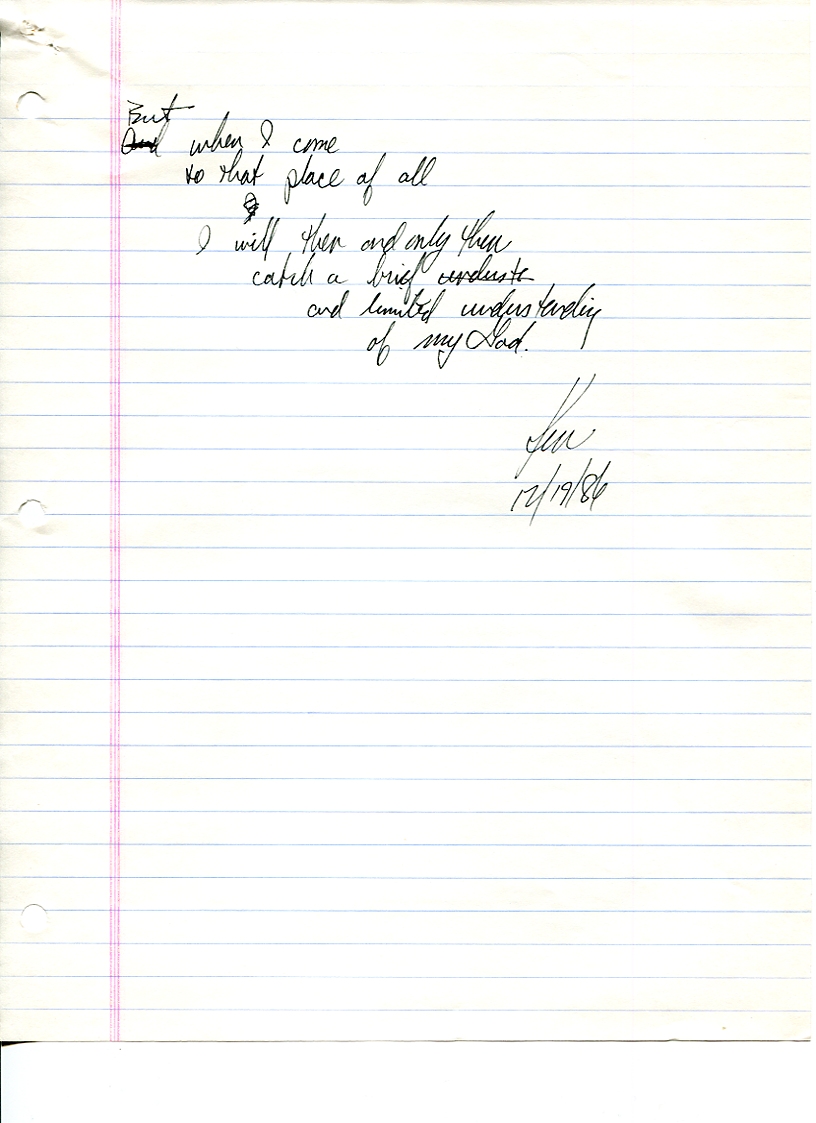 But
And when I come
to that place of all
I will then and only then
catch a brief underst
and limited understanding
of my God.
Ken
12/19/86